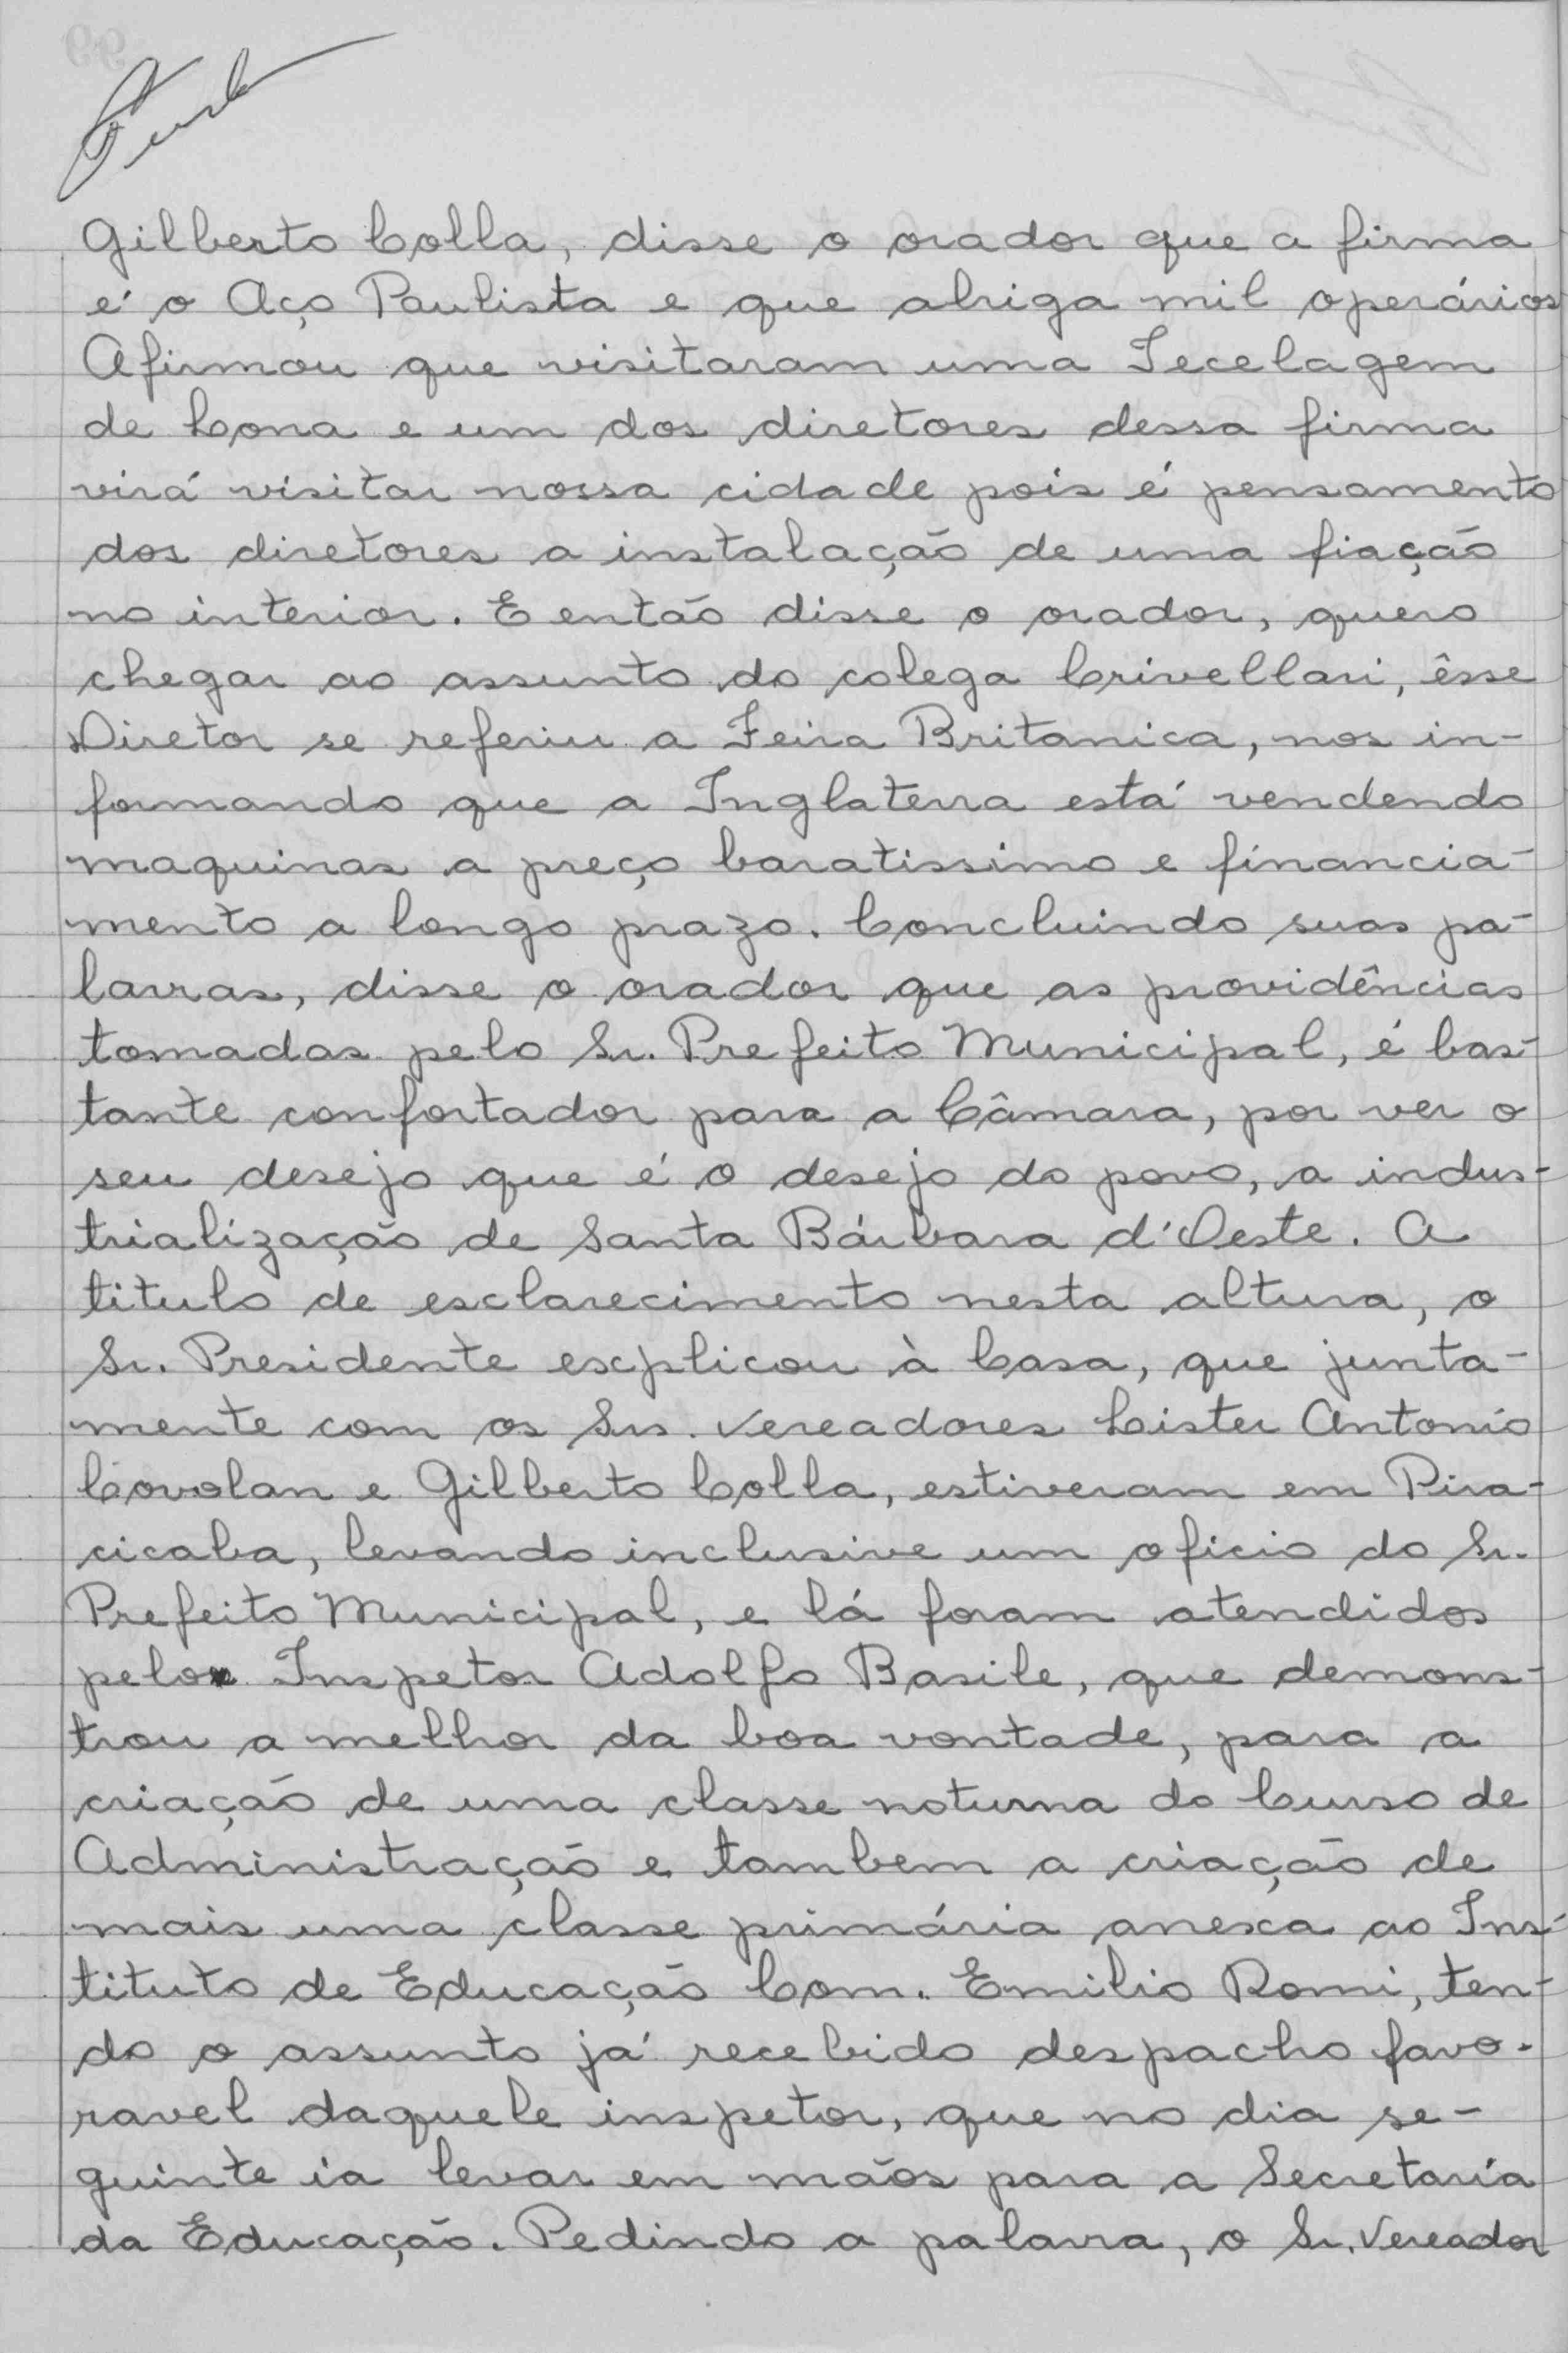 Gilberto Colla, disse o orador que a firma
é o Aço Paulista e que abriga mil operários
Afirmou que visitaram uma Tecelagem
de Lona e um dos diretores dessa firma
virá visitar nossa cidade pois é pensamento
dos diretores a instalação de uma fiação
no interior. E então disse o orador, quero
chegar ao assunto do colega Crivellari, êsse
Diretor se referiu a Feira Britanica, nos in-
formando que a Inglaterra está vendendo
maquinas a preço baratissimo e financia-
mento a longo prazo. Concluindo suas pa-
lavras, disse o orador que as providências
tomadas pelo Sr. Prefeito Municipal, é bas-
tante confortador para a Câmara, por ver o
seu desejo que é o desejo do povo, a indus-
trialização de Santa Bárbara d'Oeste. A
titulo de esclarecimento nesta altura, o
Sr. Presidente explicou à Casa, que junta-
mente com os Srs. Vereadores Lister Antonio
Covolan e Gilberto Colla, estiveram em Pira-
cicaba, levando inclusive um oficio do Sr.
Prefeito Municipal, e lá foram atendidos
pelo Inspetor Adolfo Basile, que demons-
trou a melhor da boa vontade, para a
criação de uma classe noturna do Curso de
Administração e tambem a criação de
mais uma classe primária anexa ao Ins-
tituto de Educação Com. Emilio Romi, ten-
do o assunto já recebido despacho favo-
ravel daquele inspetor, que no dia se-
guinte ia levar em mãos para a Secretaria
da Educação. Pedindo a palavra, o Sr. Vereador